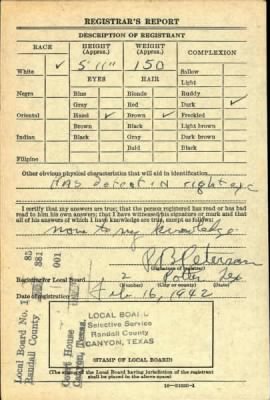 REGISTRAR'S REPORT
DESCRIPTION OF REGISTRANT
RACE
HEIGHT (Approx.)
WEIGHT (Approx.)
COMPLEXION
White ✓ 5' 11" 150 Sallow
EYES HAIR Light
Negro Blue Blonde Ruddy
Gray Red Dark ✓
Oriental Hazel ✓ Brown ✓ Freckled
Brown Black Light brown
Indian Black Gray Dark brown
Bald Black
Filipino
Other obvious physical characteristics that will aid in identification
Has defect in right eye
I certify that my answers are true; that the person registered has read or has had
read to him his own answers; that I have witnessed his signature or mark and that
all of his answers of which I have knowledge are true, except as follows:
none to my knowledge
(Signature of registrar)
Registrar for Local Board 2 Potter Tex
(Number) (City or county) (State)
Date of registration Feb 16, 1942
85
381
001
Local Board No. 1
Randall County
Court House
Canyon, Texas
LOCAL BOARD
Selective Service
Randall County
CANYON, TEXAS
(STAMP OF LOCAL BOARD)
(The stamp of the Local Board having jurisdiction of the registrant
shall be placed in the above space)